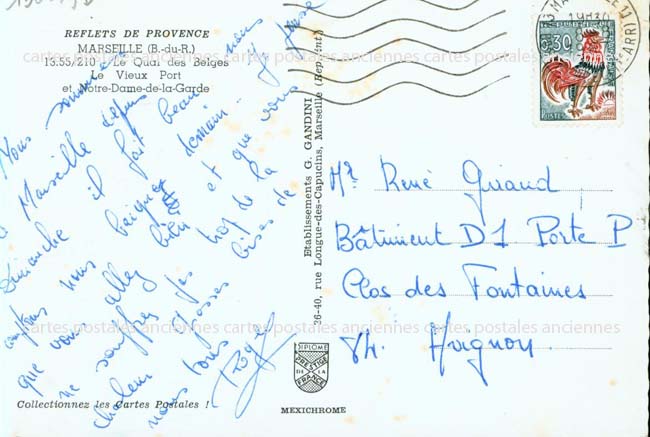 REFLETS DE PROVENCE
MARSEILLE (B.-du-R.)
13.55/210 - Le Quai des Belges
Le Vieux Port
et Notre-Dame-de-la-Garde
Nous sommes
à Marseille depuis
Dimanche il fait beau nous
nous baigner demain. J'y pense
que vous allez bien et que vous
ne souffrez pas trop de la
chaleur grosses bises de
nous tous
Roger
Collectionnez les Cartes Postales !
Etablissements G. GANDINI
36-40, rue Longue-des-Capucins, Marseille (Rep. Int.)
DIPLOME
PRESTIGE
DE LA
FRANCE
MEXICHROME
0,30
POSTES
Mr René Guiaud
Bâtiment D1 Porte P
Clos des Fontaines
84. Avignon
cartes postales anciennes cartes postales anciennes cartes postales anciennes